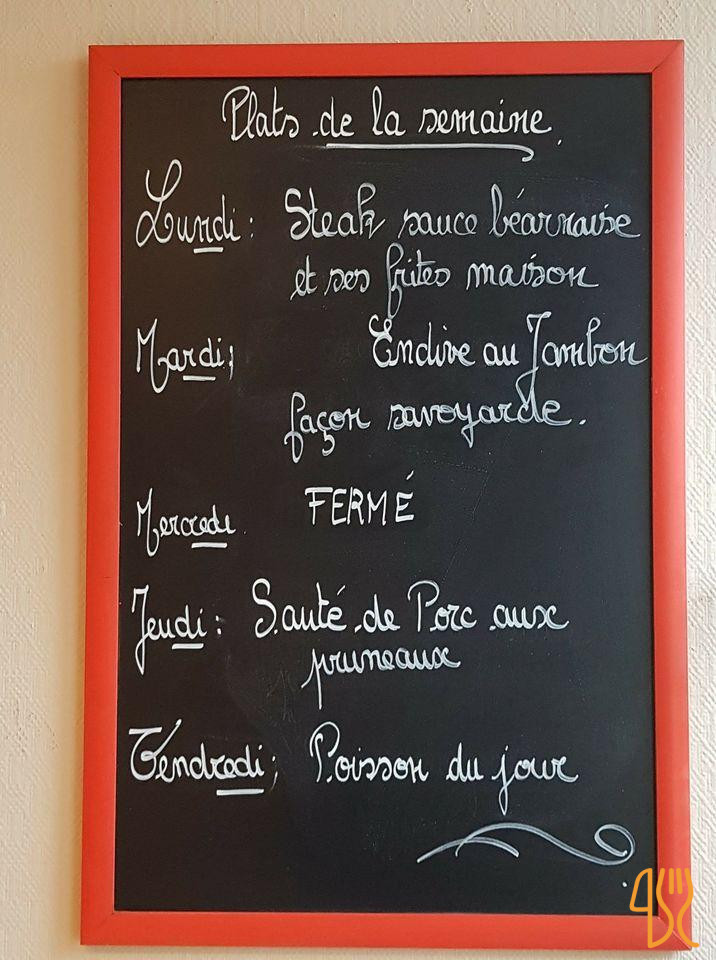 Plats de la semaine.
Lundi : Steak sauce béarnaise
et ses frites maison
Mardi ; Endive au Jambon
façon savoyarde.
Mercredi FERMÉ
Jeudi : Sauté de Porc aux
pruneaux
Vendredi ; Poisson du jour